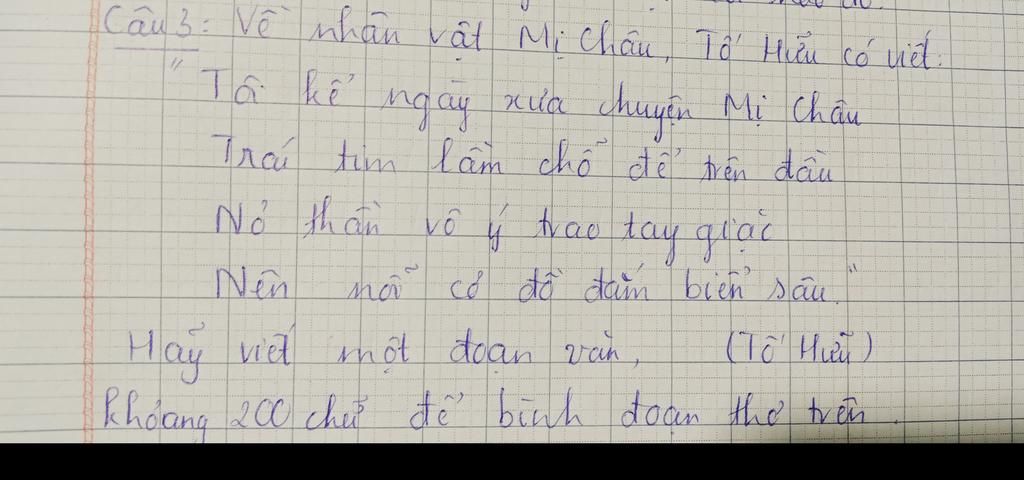 Câu 3: Về nhân vật Mị Châu, Tố Hữu có viết:
" Tôi kể ngày xưa chuyện Mị Châu
Trái tim lầm chỗ để trên đầu
Nỏ thần vô ý trao tay giặc
Nên nỗi cơ đồ đắm biển sâu."
Hãy viết một đoạn văn, (Tố Hữu)
khoảng 200 chữ để bình đoạn thơ trên.